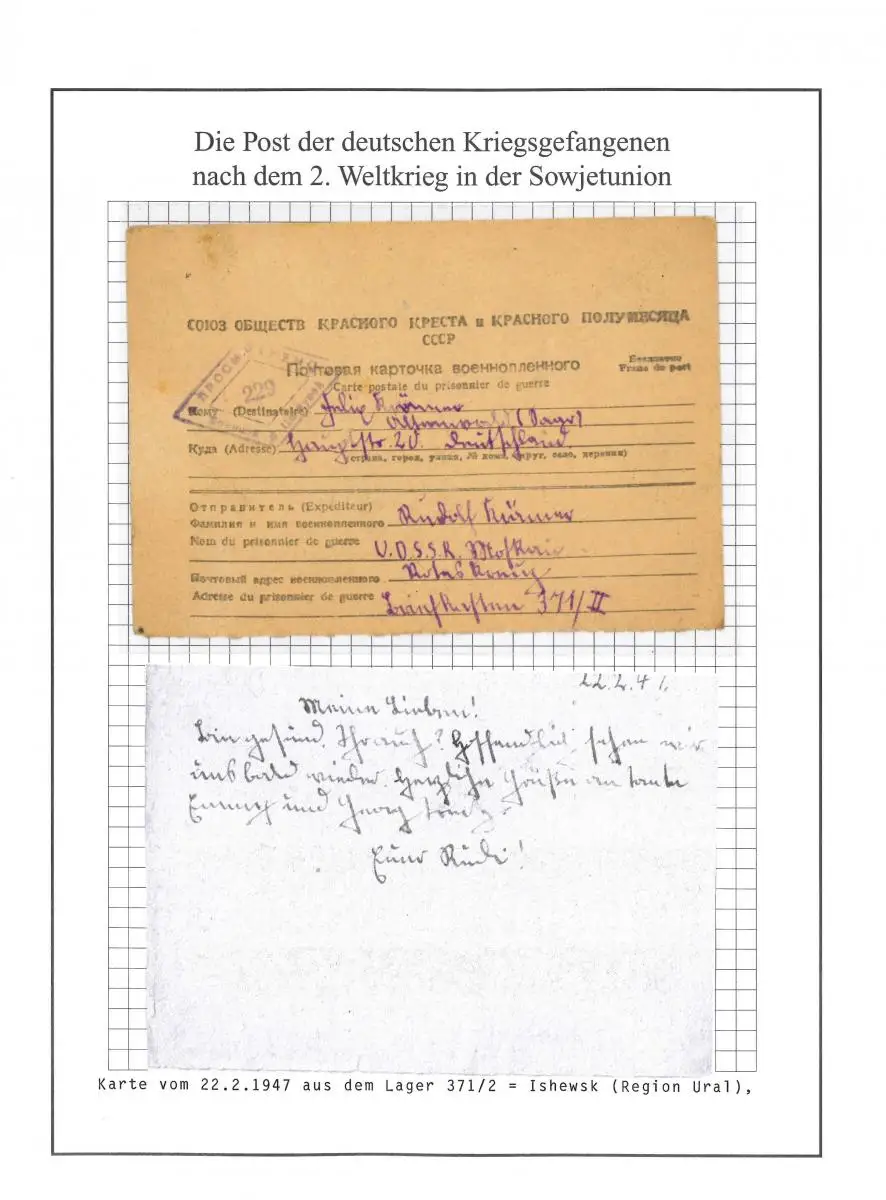 Die Post der deutschen Kriegsgefangenen
nach dem 2. Weltkrieg in der Sowjetunion
СОЮЗ ОБЩЕСТВ КРАСНОГО КРЕСТА и КРАСНОГО ПОЛУМЕСЯЦА
СССР
Почтовая карточка военнопленного
Бесплатно
Carte postale du prisonnier de guerre
Franc de port
229
Кому (Destinataire) Felix
Altenwald (Saar)
Куда (Adresse) Hauptstr. 20. Deutschland
(страна, город, улица, № дома, округ, село, деревня)
Отправитель (Expéditeur)
Фамилия и имя военнопленного Rudolf
Nom du prisonnier de guerre U.D.S.S.R. Moskau
Почтовый адрес военнопленного Rotes Kreuz
Adresse du prisonnier de guerre Briefkasten 371/II
22.2.47.
Meine Lieben!
Bin gesund. Ihr auch? Hoffendlich sehen wir
uns bald wieder. Herzliche Grüße an Tante
und Georg
Euer Rudi!
Karte vom 22.2.1947 aus dem Lager 371/2 = Ishewsk (Region Ural),